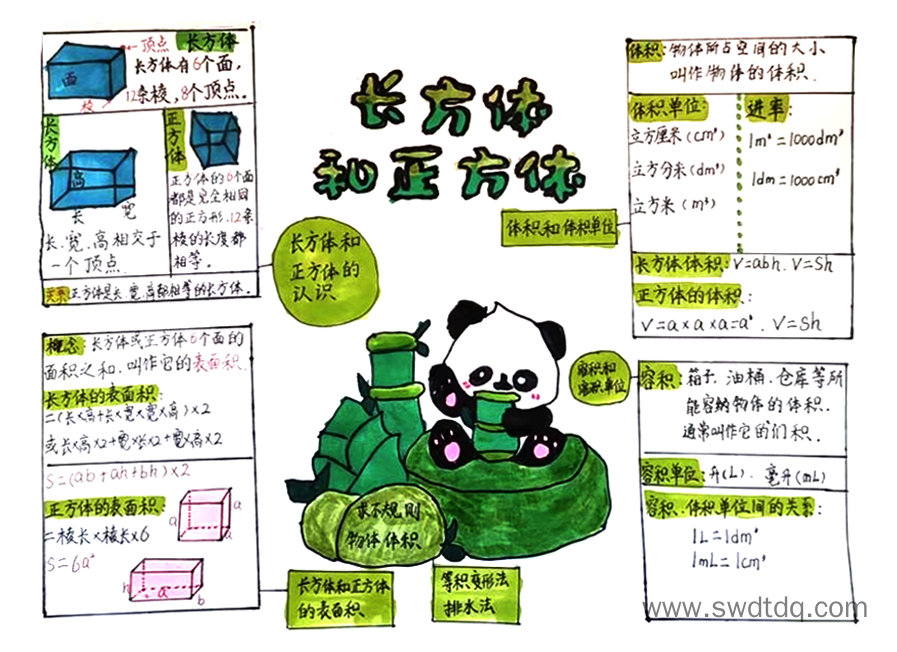 长方体
和正方体
顶点 长方体
长方体有6个面，
12条棱，8个顶点.
面
棱
长方体
高
长 宽
长、宽、高相交于
一个顶点
正方体
正方体的6个面
都是完全相同
的正方形.12条
棱的长度都
相等。
关系:正方体是长、宽、高都相等的长方体.
长方体和
正方体的
认识
概念:长方体或正方体6个面的
面积之和.叫作它的表面积.
长方体的表面积:
=(长×高+长×宽×宽×高)×2
或长×高×2+宽×长×2+宽×高×2
S=(ab+ah+bh)×2
正方体的表面积:
=棱长×棱长×6
S=6a²
a
a
a
h
a
b
长方体和正方体
的表面积
求不规则
物体体积
等积变形法
排水法
体积和体积单位
体积:物体所占空间的大小
叫作物体的体积.
体积单位:
立方厘米(cm³)
立方分米(dm³)
立方米(m³)
进率:
1m³=1000dm³
1dm=1000cm³
长方体体积:V=abh.V=Sh
正方体的体积:
V=a×a×a=a³.V=Sh
容积和
容积单位
容积:箱子、油桶、仓库等所
能容纳物体的体积.
通常叫作它的们积.
容积单位:升(L).毫升(mL)
容积.体积单位间的关系:
1L=1dm³
1mL=1cm³
www.swdtdq.com